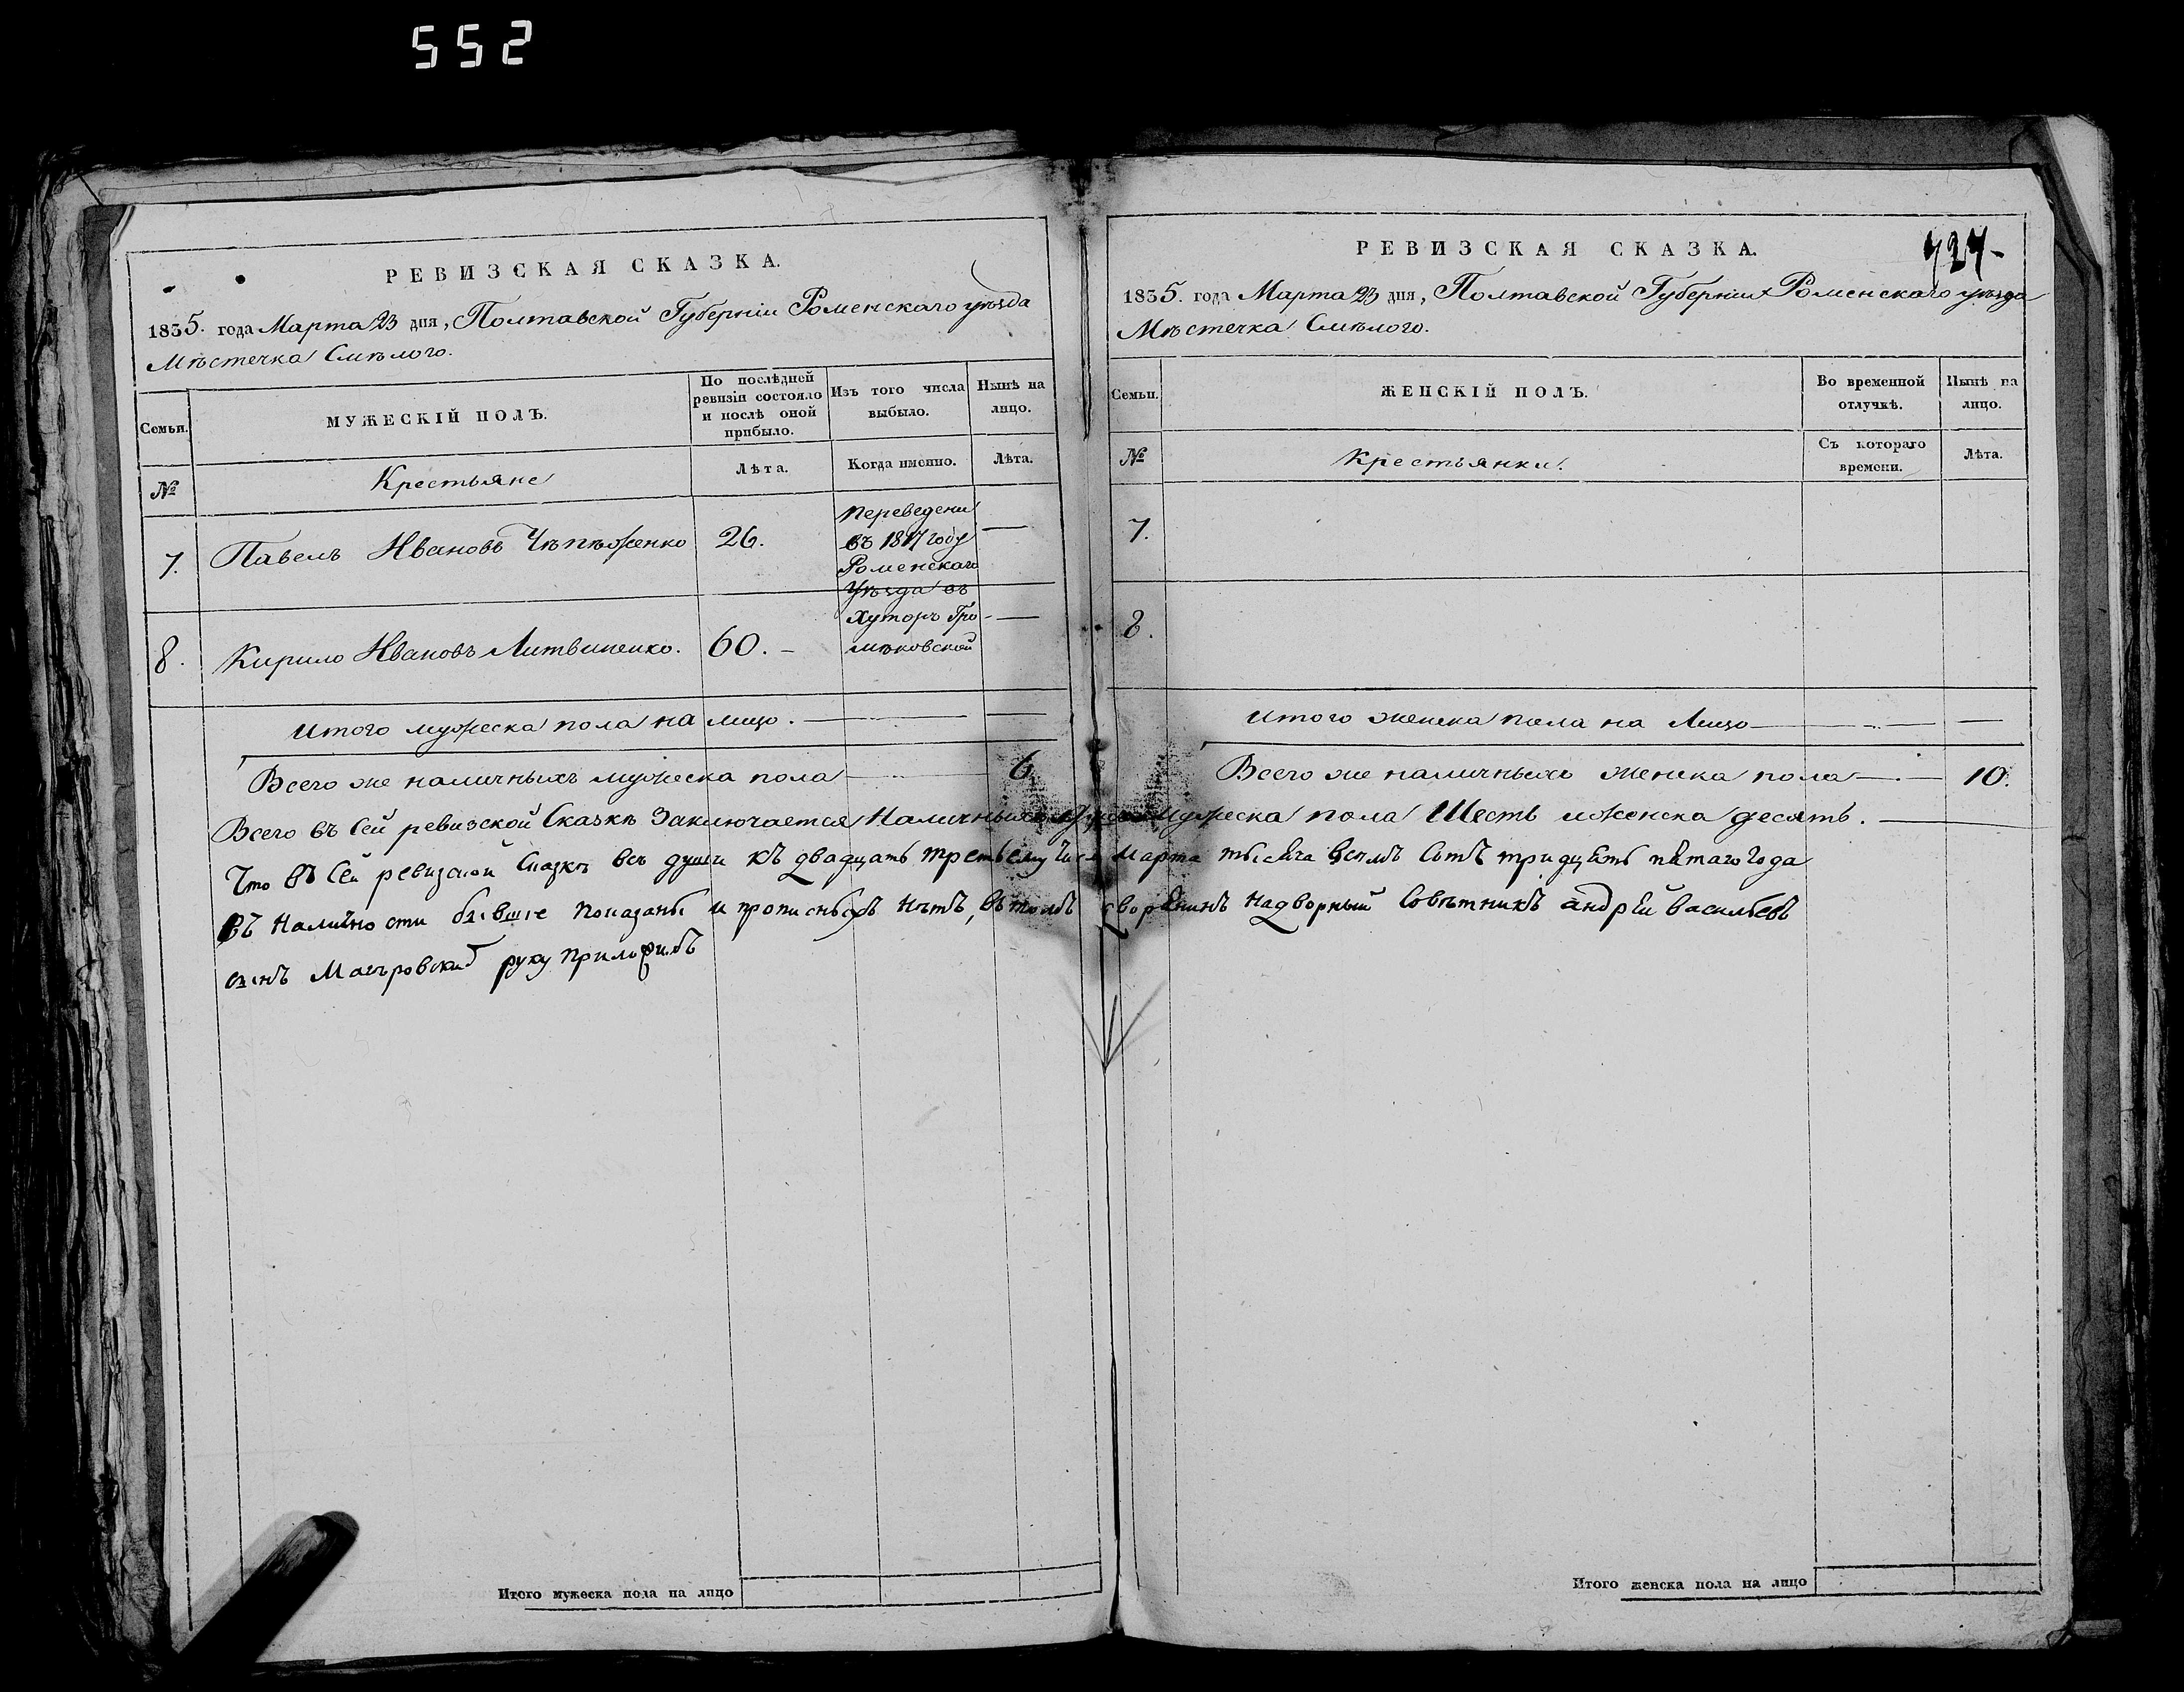 552
РЕВИЗСКАЯ СКАЗКА.
1835. года Марта 23 дня, Полтавской Губерніи Роменскаго уѣзда
Мѣстечка Смѣлого.
Семьи.
МУЖЕСКІЙ ПОЛЪ.
По послѣдней ревизіи состояло и послѣ оной прибыло.
Изъ того числа выбыло.
Нынѣ на лицо.
№
Крестьяне
Лѣта.
Когда именно.
Лѣта.
7. Павелъ Ивановъ Чѣпѣженко 26.
переведени
въ 1817 году
Роменскаго
Уѣзда въ
хуторъ Гро-
мѣковской
8. Кирило Ивановъ Литвиненко. 60. -
Итого мужеска пола на лицо. —
Всего же наличныхъ мужеска пола — 6
РЕВИЗСКАЯ СКАЗКА.
1835. года Марта 23 дня, Полтавской Губерніи Роменскаго уѣзда
Мѣстечка Смѣлого.
Семьи.
ЖЕНСКІЙ ПОЛЪ.
Во временной отлучкѣ.
Нынѣ на лицо.
№
Крестьянки.
Съ котораго времени.
Лѣта.
7.
8.
Итого женска пола на Лицо —
Всего же наличныхъ женска пола — 10.
Всего въ Сей ревизской Сказкѣ Заключается Наличныхъ мужеска пола Шесть иженска десять.
Что въ Сей ревизской Сказкѣ всѣ души къ двадцать третьему Числу Марта тысяча восемъ Сотъ тридцать пятаго года
въ Наличности бывшіе показаны и прописныхъ Нѣтъ, въ томъ дворянинъ Надворный Совѣтникъ андрей васильевъ
сынъ руку приложилъ
Итого мужеска пола на лицо
Итого женска пола на лицо